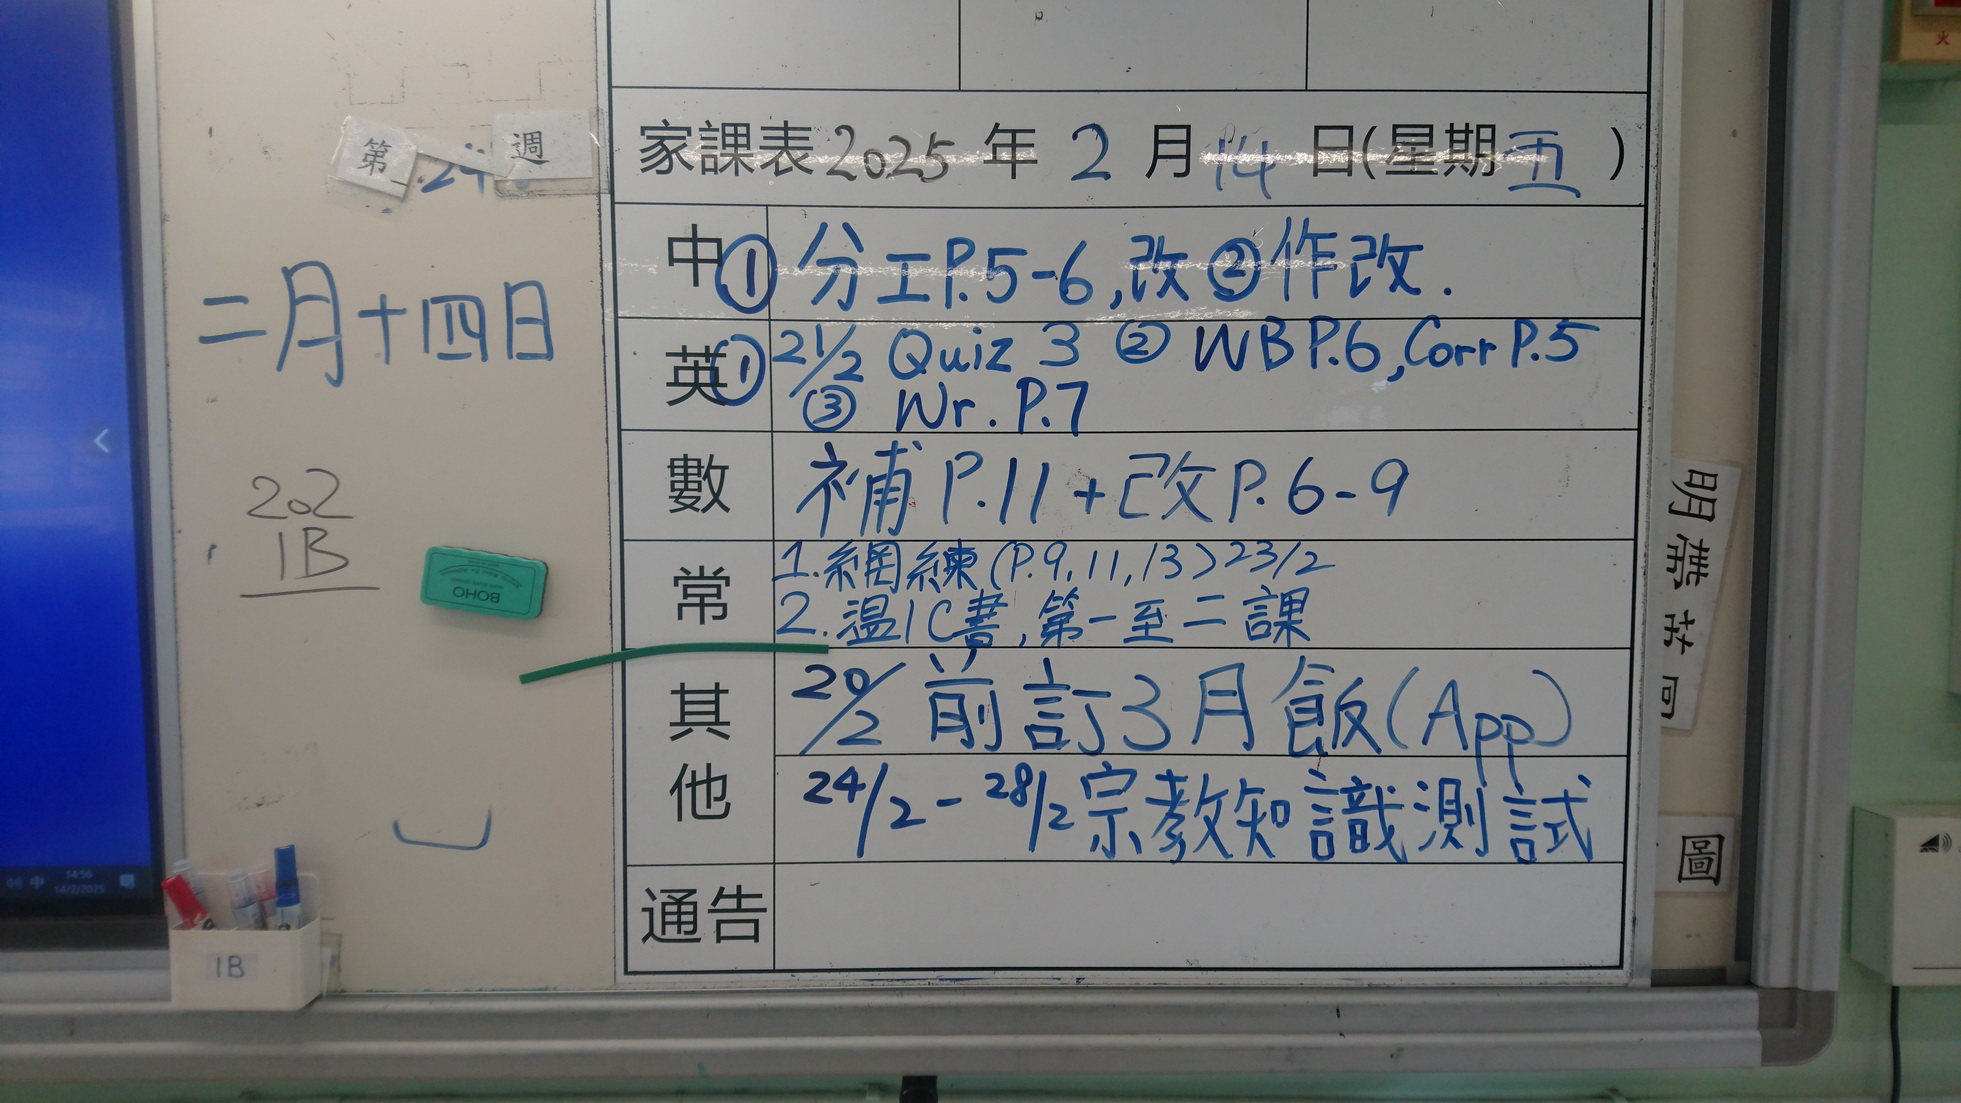 火
第 24 週
家課表 2025 年 2 月 14 日(星期 五 )
二月十四日
中 ① 分工P.5-6,改 ② 作改.
英 ① 21/2 Quiz 3 ② WB P.6, Corr P.5
③ Wr. P.7
數 補 P.11 + 改 P. 6-9
202
1B
常 1. 網練 (P.9, 11, 13) 23/2
2. 溫1C書, 第一至二課
BOHO
其他 20/2 前訂3月飯(App)
24/2 - 28/2 宗教知識測試
通告
明帶
圖
中 14:56
14/2/2025
1B